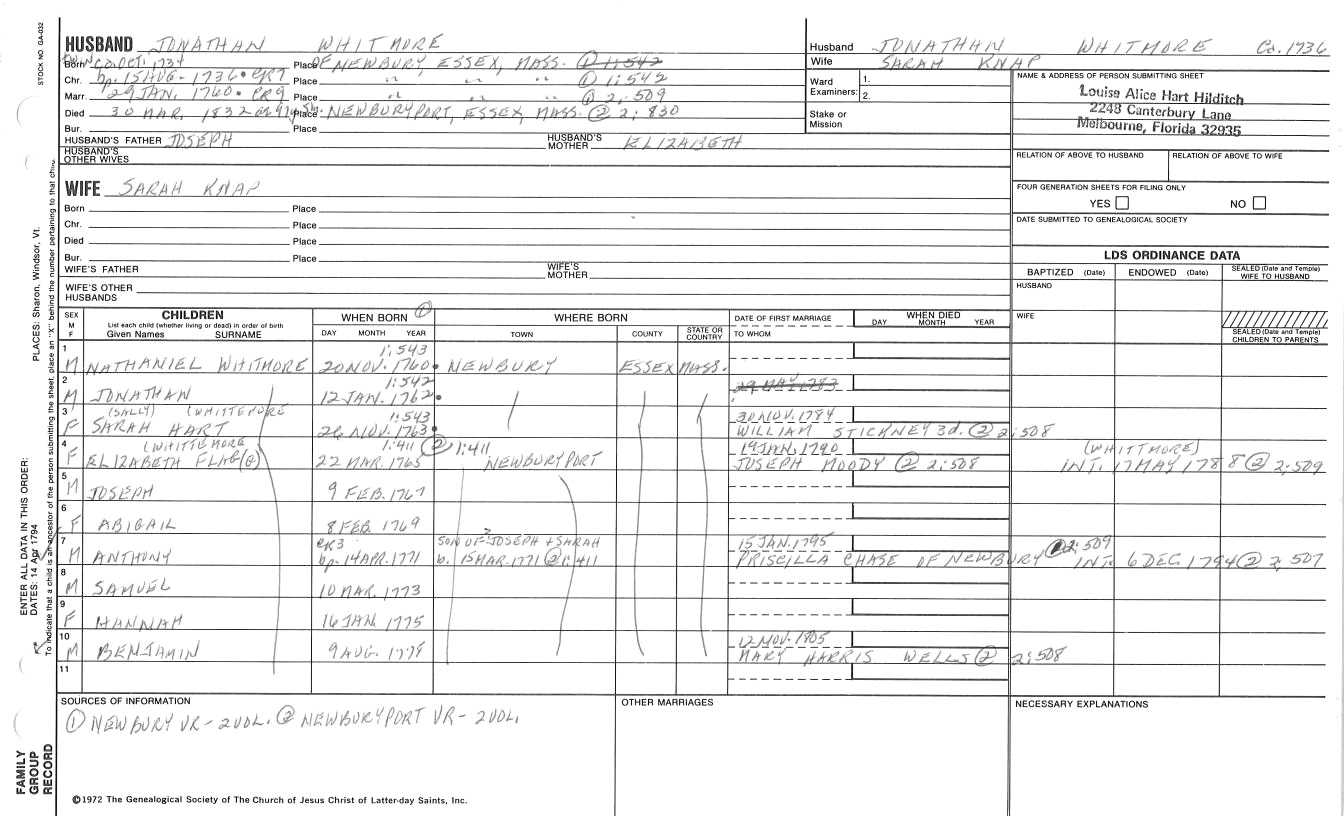 STOCK NO. GA-032
HUSBAND JONATHAN WHITMORE
Born CA. OCT. 1734 Place OF NEWBURY, ESSEX, MASS. ① 1:542
Chr. bp. 15 AUG. 1736. CR7 Place " " " ① 1:542
Marr. 29 JAN. 1760. PR9 Place " " " ① 2:509
Died 30 MAR. 1832 Place NEWBURYPORT, ESSEX, MASS. ② 2:830
Bur. Place
HUSBAND'S FATHER JOSEPH HUSBAND'S MOTHER ELIZABETH
HUSBAND'S OTHER WIVES
Husband JONATHAN WHITMORE Ca. 1736
Wife SARAH KNAP
Ward Examiners: 1. 2.
Stake or Mission
NAME & ADDRESS OF PERSON SUBMITTING SHEET
Louise Alice Hart Hilditch
2248 Canterbury Lane
Melbourne, Florida 32935
RELATION OF ABOVE TO HUSBAND RELATION OF ABOVE TO WIFE
FOUR GENERATION SHEETS FOR FILING ONLY
YES NO
DATE SUBMITTED TO GENEALOGICAL SOCIETY
WIFE SARAH KNAP
Born Place
Chr. Place
Died Place
Bur. Place
WIFE'S FATHER WIFE'S MOTHER
WIFE'S OTHER HUSBANDS
LDS ORDINANCE DATA
BAPTIZED (Date) ENDOWED (Date) SEALED (Date and Temple) WIFE TO HUSBAND
HUSBAND
WIFE
SEALED (Date and Temple) CHILDREN TO PARENTS
SEX M F CHILDREN WHEN BORN ① WHERE BORN DATE OF FIRST MARRIAGE WHEN DIED
List each child (whether living or dead) in order of birth
Given Names SURNAME DAY MONTH YEAR TOWN COUNTY STATE OR COUNTRY TO WHOM DAY MONTH YEAR
1 1:543
M NATHANIEL WHITMORE 20 NOV. 1760. NEWBURY ESSEX MASS.
2 1:542 29 MAY 1783
M JONATHAN 12 JAN. 1762.
3 (SALLY) (WHITTEMORE 1:543 30 NOV. 1784
F SARAH HART 26 NOV. 1763. WILLIAM STICKNEY 3d. ② 2:508
4 (WHITTEMORE 1:411 ② 1:411 19 JAN. 1790 (WHITTMORE)
F ELIZABETH FLAG(G) 22 MAR. 1765 NEWBURYPORT JOSEPH MOODY ② 2:508 INT. 17 MAY 1788 ② 2:509
5
M JOSEPH 9 FEB. 1767
6
F ABIGAIL 8 FEB. 1769
7 CR3 SON OF JOSEPH + SARAH ? 15 JAN. 1795 ② 2:509
M ANTHONY bp. 14 APR. 1771 b. 15 MAR. 1771 ② 1:411 PRISCILLA CHASE OF NEWBURY INT. 6 DEC. 1794 ② 2:507
8
M SAMUEL 10 MAR. 1773
9
F HANNAH 16 JAN. 1775
10 12 NOV. 1805
M BENJAMIN 9 AUG. 1778 MARY HARRIS WELLS ② 2:508
11
SOURCES OF INFORMATION OTHER MARRIAGES NECESSARY EXPLANATIONS
① NEWBURY VR - 2 VOL. ② NEWBURYPORT VR - 2 VOL.
©1972 The Genealogical Society of The Church of Jesus Christ of Latter-day Saints, Inc.
FAMILY GROUP RECORD
ENTER ALL DATA IN THIS ORDER:
DATES: 14 Apr 1794
PLACES: Sharon, Windsor, Vt.
To indicate that a child is an ancestor of the person submitting the sheet, place an "X" behind the number pertaining to that child.